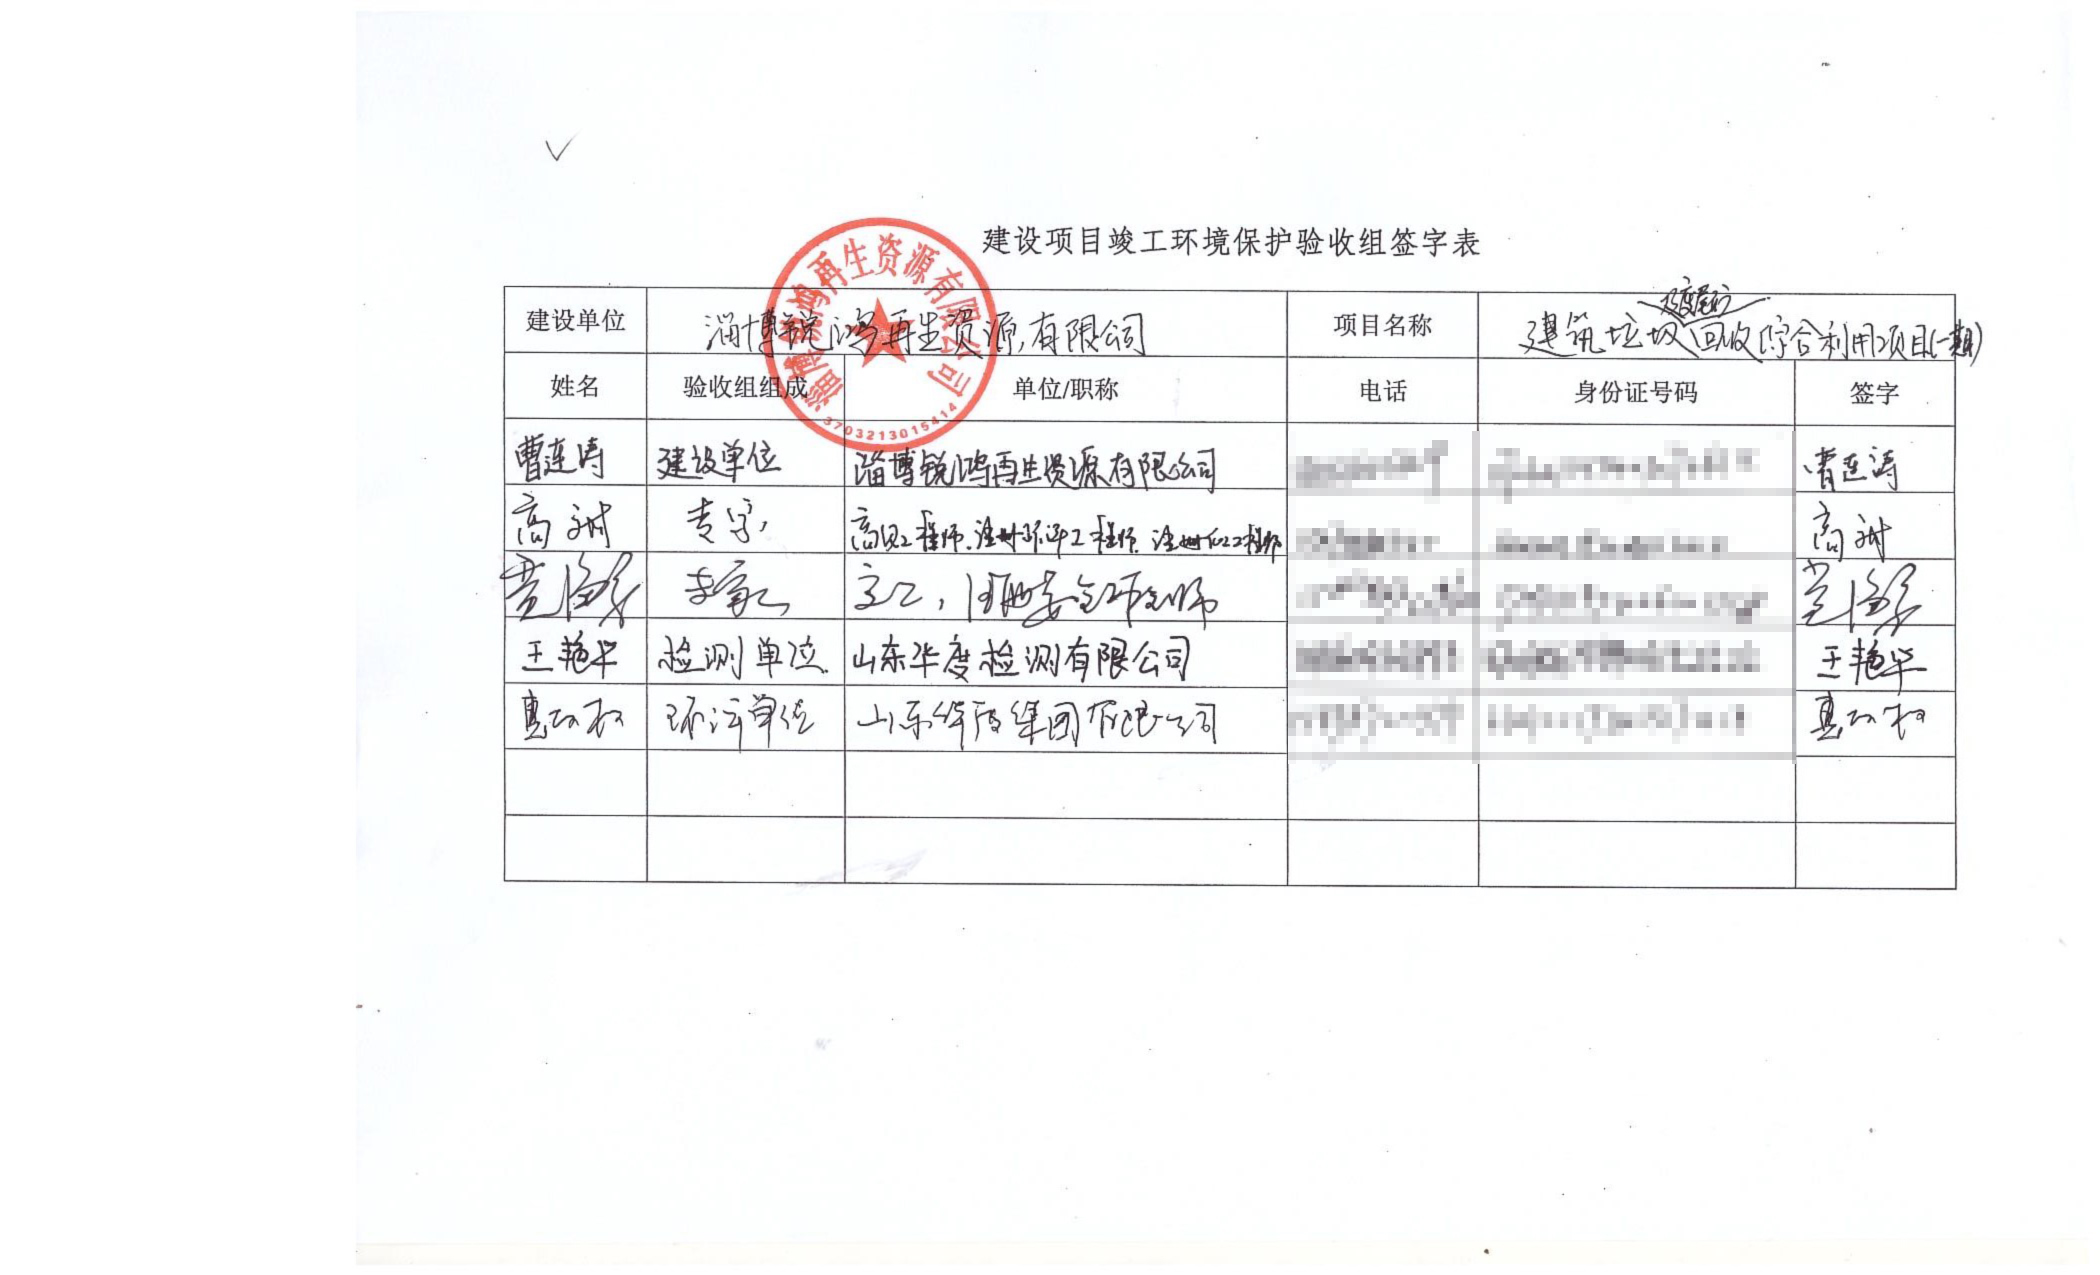 建设项目竣工环境保护验收组签字表
建设单位 淄博锐鸿再生资源有限公司 项目名称 建筑垃圾及废尾矿回收综合利用项目(一期)
淄博锐鸿再生资源有限公司
3703213015414
姓名 验收组组成 单位/职称 电话 身份证号码 签字
曹连涛 建设单位 淄博锐鸿再生资源有限公司 曹连涛
高 专家 高级工程师、注册环评工程师、注册化工工程师 高
专家 高工,
王艳华 检测单位 山东华度检测有限公司 王艳华
环评单位 山东华度集团有限公司